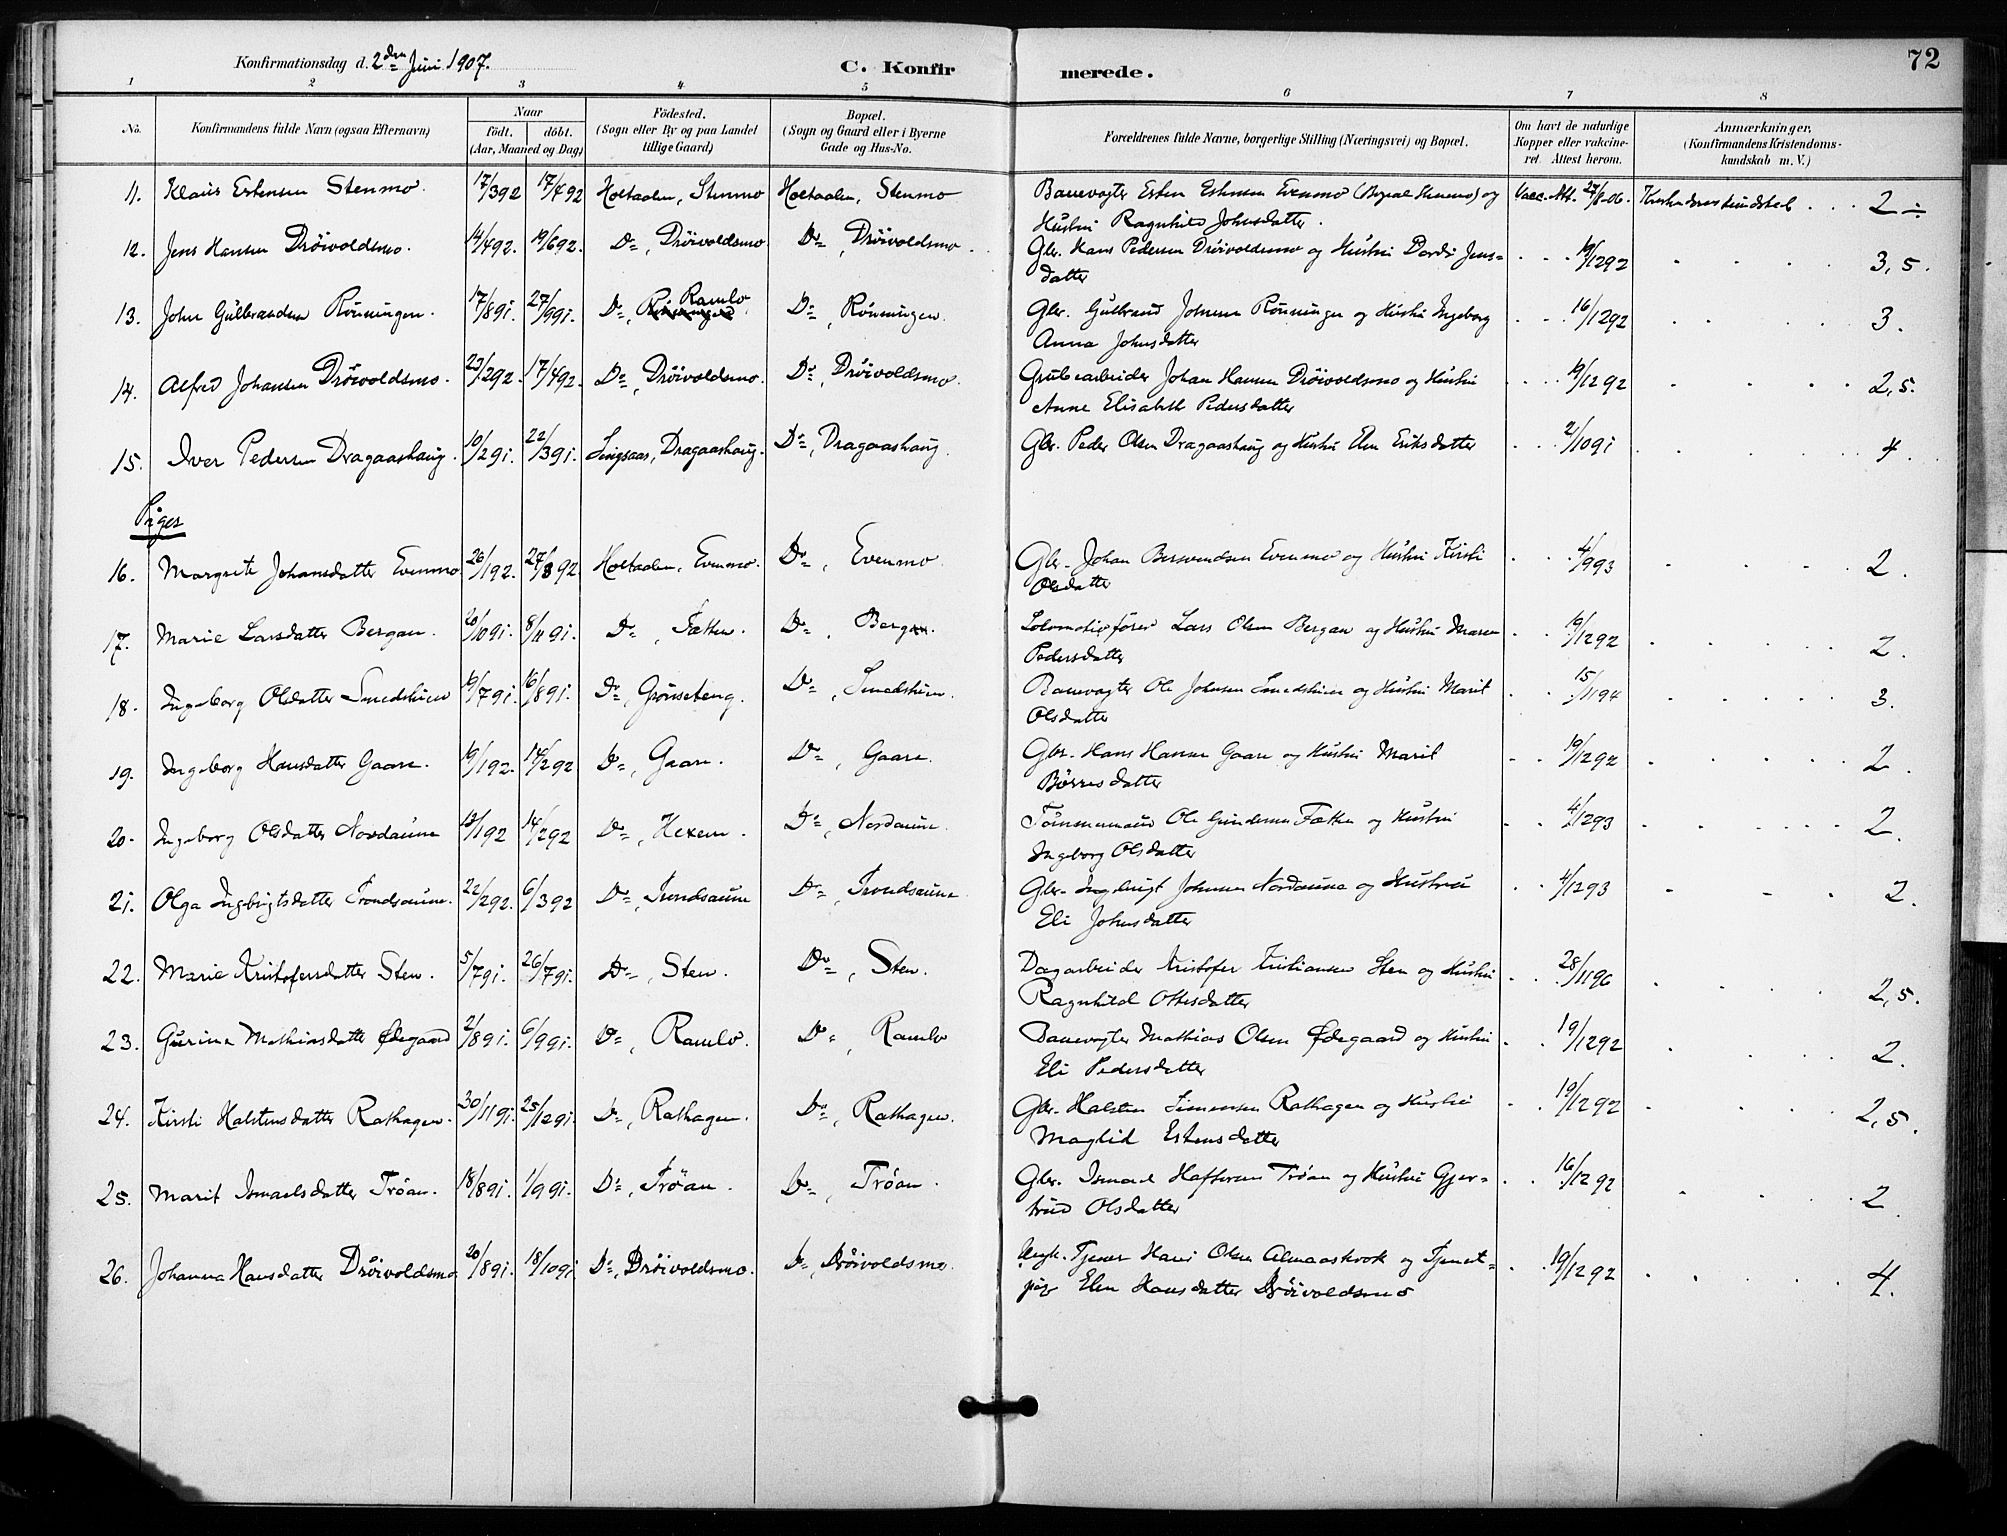 72
Konfirmationsdag d. 2den Juni 1907.
C. Konfirmerede.
1 2 3 4 5 6 7 8
No. Konfirmandens fulde Navn (ogsaa Efternavn) Naar født. døbt. (Aar, Maaned og Dag) Fødested. (Sogn eller By og paa Landet tillige Gaard) Bopæl. (Sogn og Gaard eller i Byerne Gade og Hus-No. Forældrenes fulde Navne, borgerlige Stilling (Næringsvei) og Bopæl. Om havt de naturlige Kopper eller vakcineret. Attest herom. Anmærkninger. (Konfirmandens Kristendomskundskab m. V.)
11. Klaus Estensen Stenmo. 17/3 92 17/4 92 Holtaalen, Stenmo Holtaalen, Stenmo Banevogter Esten Estensen Evenmo (Bopæl Stenmo) og Vacc. Att. 27/8-06. Kristendomskundskab 2 ÷
Hustru Ragnhild Johnsdatter.
12. Jens Hansen Drøivoldsmo. 14/4 92. 19/6 92. Do, Drøivoldsmo Do, Drøivoldsmo. Gbr. Hans Pedersen Drøivoldsmo og Hustru Dordi Jens- 19/12 92 3,5.
datter
13. John Gulbrandsen Rønningen. 17/8 91. 27/9 91. Do, Ramlo Do, Rønningen. Gbr. Gulbrand Johnsen Rønningen og Hustru Ingeborg 16/12 92 3.
Anna Johnsdatter
14. Alfred Johansen Drøivoldsmo. 23/2 92. 17/4 92. Do, Drøivoldsmo. Do, Drøivoldsmo. Grubearbeider Johan Hansen Drøivoldsmo og Hustru 19/12 92 2,5.
Anne Elisabeth Pedersdatter
15. Iver Pedersen Dragaashaug. 10/2 91. 22/3 91. Singsaas, Dragaashaug. Do, Dragaashaug Gbr. Peder Olsen Dragaashaug og Hustru Elen Eriksdatter 2/10 91 4.
Piger
16. Margrete Johansdatter Evenmo 26/1 92. 27/3 92 Holtaalen, Evenmo. Do, Evenmo. Gbr. Johan Bersvendsen Evenmo og Hustru Kirsti 4/9 93 2.
Olsdatter
17. Marie Larsdatter Bergan. 20/10 91. 8/11 91. Do, Fætten. Do, Berg. Lokomotivfører Lars Olsen Bergan og Hustru Maren 19/12 92 2.
Pedersdatter
18. Ingeborg Olsdatter Smedshien 19/7 91. 16/8 91. Do, Grønseteng. Do, Smedshien. Banevogter Ole Johnsen Smedshien og Hustru Marit 15/11 94 3.
Olsdatter
19. Ingeborg Hansdatter Gaare. 19/1 92. 14/2 92 Do, Gaare. Do, Gaare. Gbr. Hans Hansen Gaare og Hustru Marit 19/12 92 2.
Børresdatter
20. Ingeborg Olsdatter Nordaune 19/1 92 14/2 92 Do, Hexem. Do, Nordaune. Tømmermand Ole Gundersen Fætten og Hustru 4/12 93 2.
Ingeborg Olsdatter
21. Olga Ingbrigtsdatter Trondsaune. 22/2 92. 6/3 92 Do, Trondsaune Do, Trondsaune Gbr. Ingbrigt Johnsen Nordaune og Hustru 4/12 93 2.
Eli Johnsdatter
22. Marie Kristofersdatter Sten. 5/7 91. 26/7 91. Do, Sten. Do, Sten. Dagarbeider Kristofer Kristiansen Sten og Hustru 28/11 96 2,5.
Ragnhild Ottesdatter
23. Gurine Mathiasdatter Ødegaard 2/8 91. 6/9 91. Do, Ramlo. Do, Ramlo Banevogter Mathias Olsen Ødegaard og Hustru 19/12 92 2.
Eli Pedersdatter
24. Kirsti Halstensdatter Rathagen. 30/11 91. 25/12 91. Do, Rathagen. Do, Rathagen. Gbr. Halsten Simensen Rathagen og Hustru 19/12 92 2,5.
Maglid Estensdatter
25. Marit Ismaelsdatter Trøan. 18/8 91. 1/9 91. Do, Trøan. Do, Trøan. Gbr. Ismael Trøan og Hustru Gjer- 16/12 92 2
trud Olsdatter
26. Johanna Hansdatter Drøivoldsmo 20/8 91. 18/10 91 Do, Drøivoldsmo. Do, Drøivoldsmo. Ungk. Tjener Hans Olsen Almaaskrok og Tjenest- 19/12 92 4.
pige Elen Hansdatter Drøivoldsmo